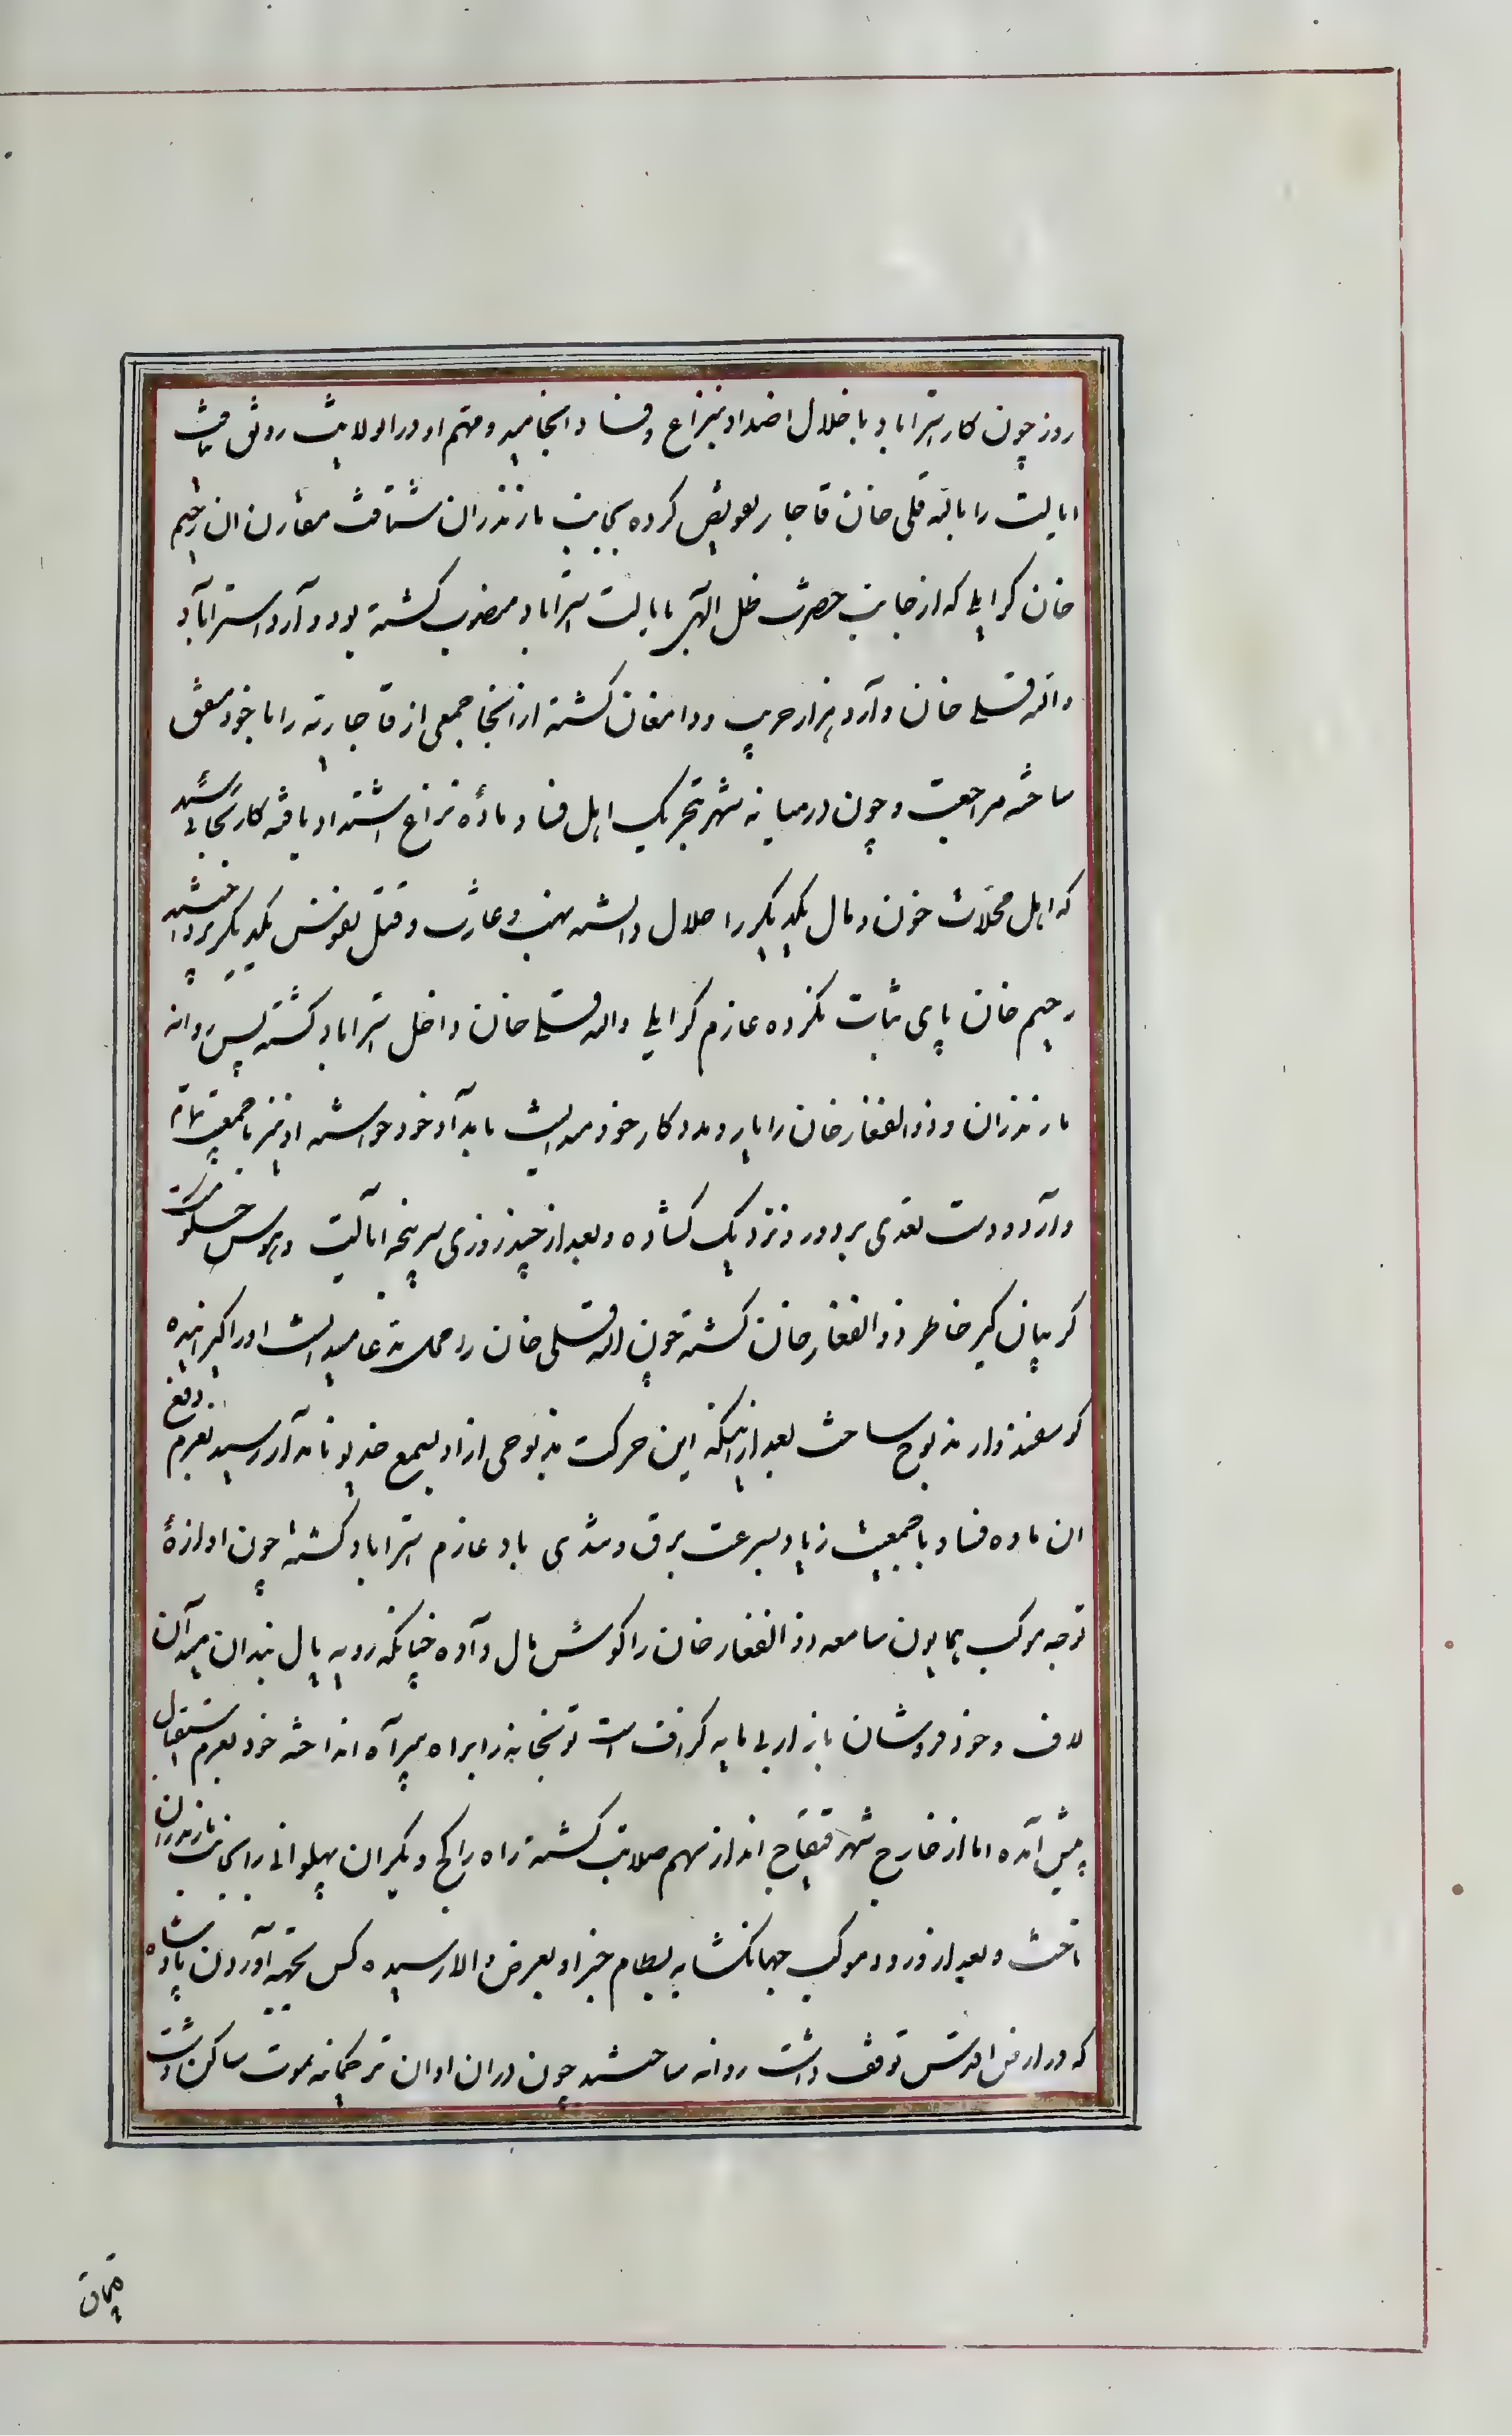 روز چون کار استراباد باخلال اضداد بنزاع و فساد انجامید و مهم او در انولایت رونق نیافت
ایالت را باله قلی خان قاجار تفویض کرده بجانب مازندران شتافت مقارن ان رحیم
خان کرایلی که از جانب حضرت ظل الهی بایالت استراباد منصوب کشته بود وارد استراباد
و اله قلی خان وارد هزار جریب و دامغان کشته از انجا جمعی از قاجاریه را با خود متفق
ساخته مراجعت و چون درمیانه شهر بتحریک اهل فساد ماده نزاع اشتداد یافته کار بجائی رسید
که اهل محلات خون و مال یکدیکر را حلال دانسته بنهب و غارت و قتل نفوس یکدیکر پرداختند
رحیم خان پای ثبات نکرده عازم کرایلی و اله قلی خان داخل استراباد کشته پس روانه
مازندران و ذوالفقار خان را یار و مددکار خود میدانست بامداد خود خواسته او نیز با جمعیت تمام
وارد و دست تعدی بر دور و نزدیک کشاده و بعد از چند روزی سرپنجه ایالت و هوس حکومت
کریبان کیر خاطر ذوالفقار خان کشته چون اله قلی خان را مخل مدعا میدانست او را کیرانیده
کوسفندوار مذبوح ساخت بعد از اینکه این حرکت مذبوحی از او بسمع خدیو نامدار رسید بعزم دفع
ان ماده فساد با جمعیت زیاد بسرعت برق و تندی باد عازم استراباد کشته چون اوازۀ
توجه موکب همایون سامعه ذوالفقار خان را کوش مال داده چنانکه رویه یال بندان میدان
لاف و خود فروشان بازار بی مایه کزاف است توپخانه را براه سرراه انداخته خود بعزم استقبال
پیش آمده اما از خارج شهر قیقاج انداز سهم صلابت کشته راه را کج و یکران پهلوانی را بجانب مازندران
تاخت و بعد از ورود موکب جهانکشا به بسطام خبر او بعرض والا رسیده کس بجهة آوردن پادشاه
که در ارض اقدس توقف داشت روانه ساختند چون دران اوان ترکمانه یموت ساکن دشت
قبچاق